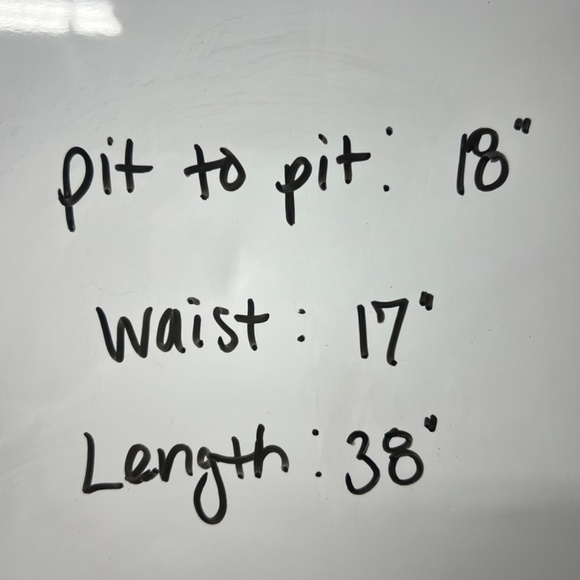 pit to pit: 18"
waist: 17"
Length: 38"